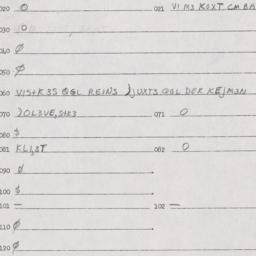 020 0 021 VI M3 KOXT CM BA
030 0
040 Ø
050 Ø
060 VIS+K3S QGL REINS DJUXTS QGL DER KEJM3N
070 2OL3VE, S+K3 071 0
080 $
081 KLI,3T 082 0
090 Ø
100 $
101 — 102 —
110 Ø
120 Ø